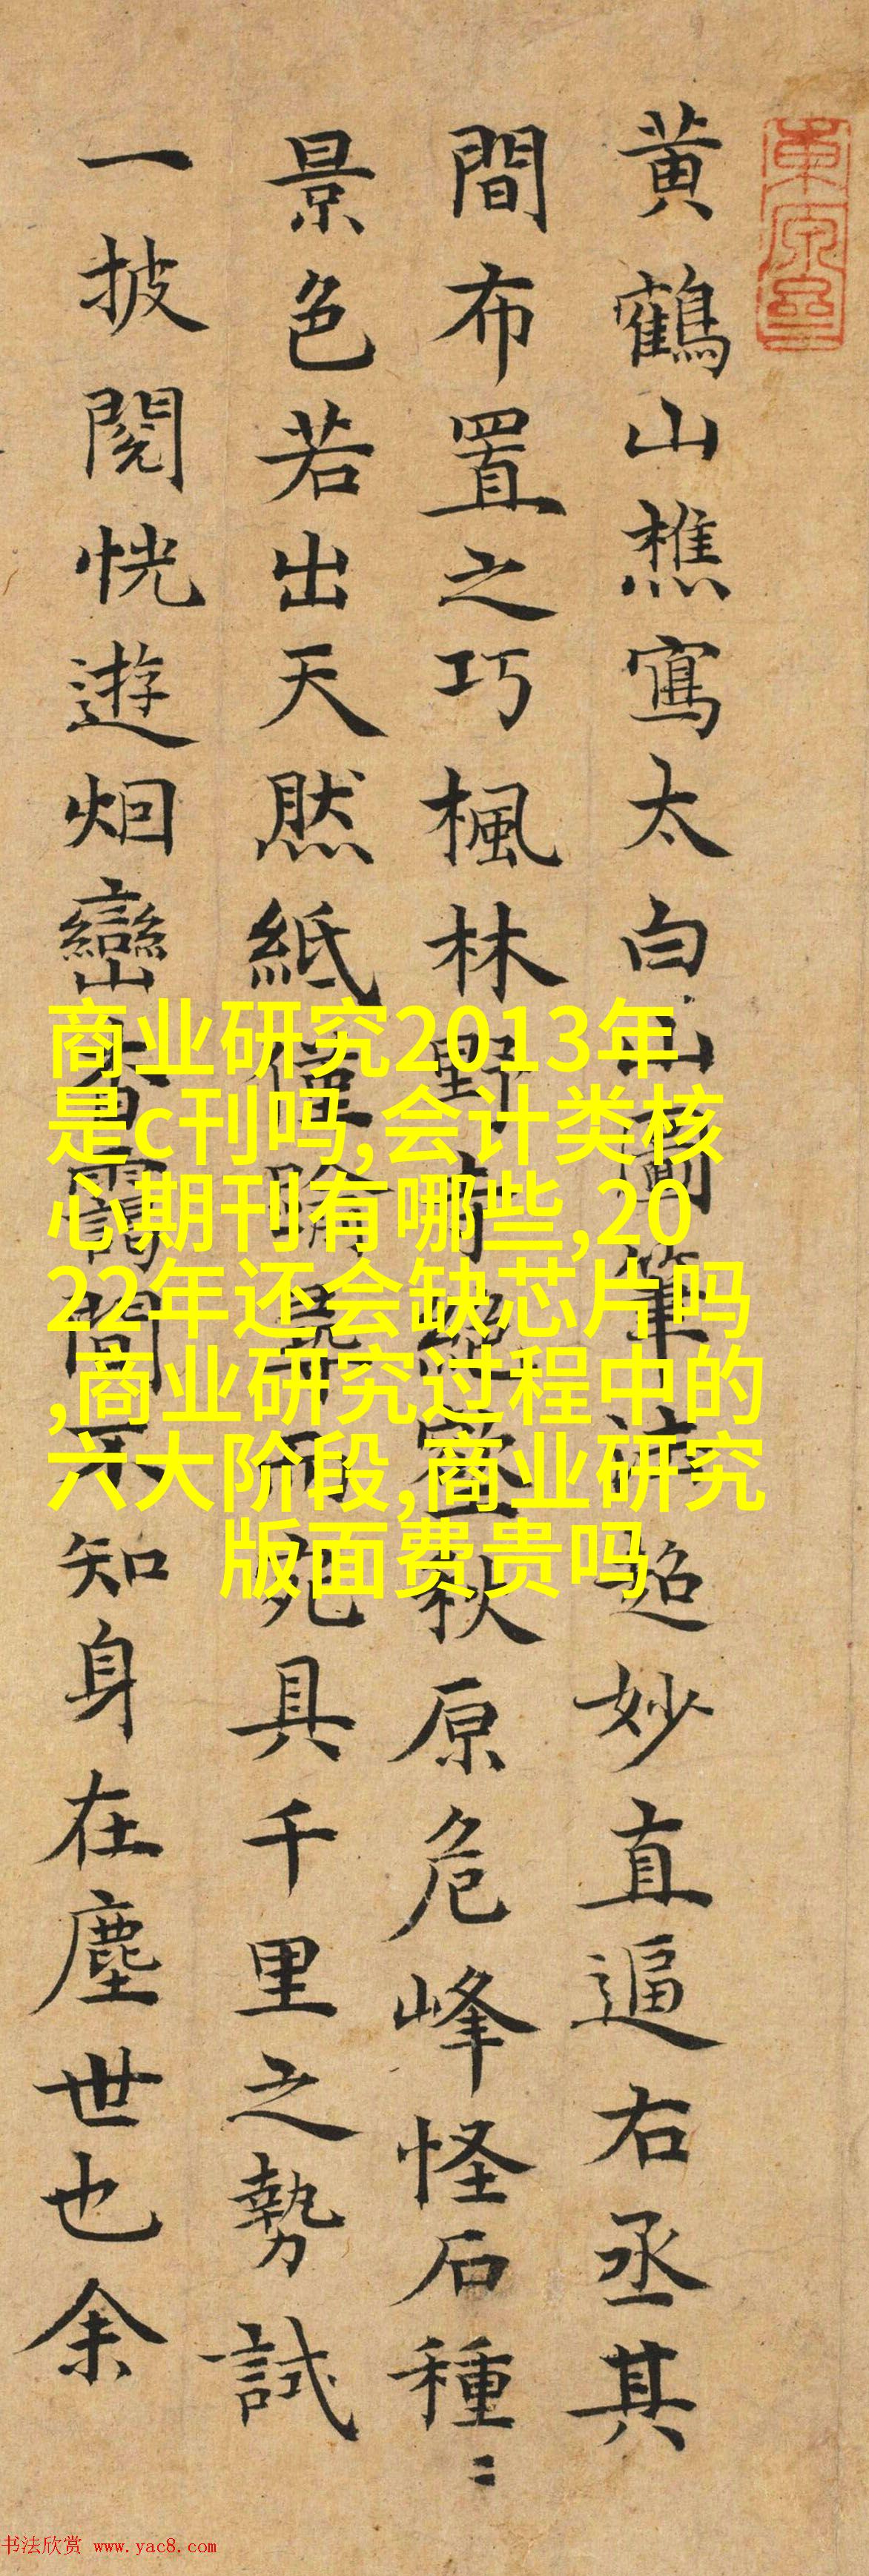 黄鶴山樵寫太白山圖筆法超妙直逼右丞其
間布置之巧楓林野寺絕壑秋原危峰怪石種〻
景色若出天然紙僅踰尋而宛具千里之勢試
一披閱恍遊烟巒杳靄間不知身在塵世也余
商业研究2013年
是c刊吗,会计类核
心期刊有哪些,20
22年还会缺芯片吗
,商业研究过程中的
六大阶段,商业研究
版面费贵吗
书法欣赏 www.yac8.com